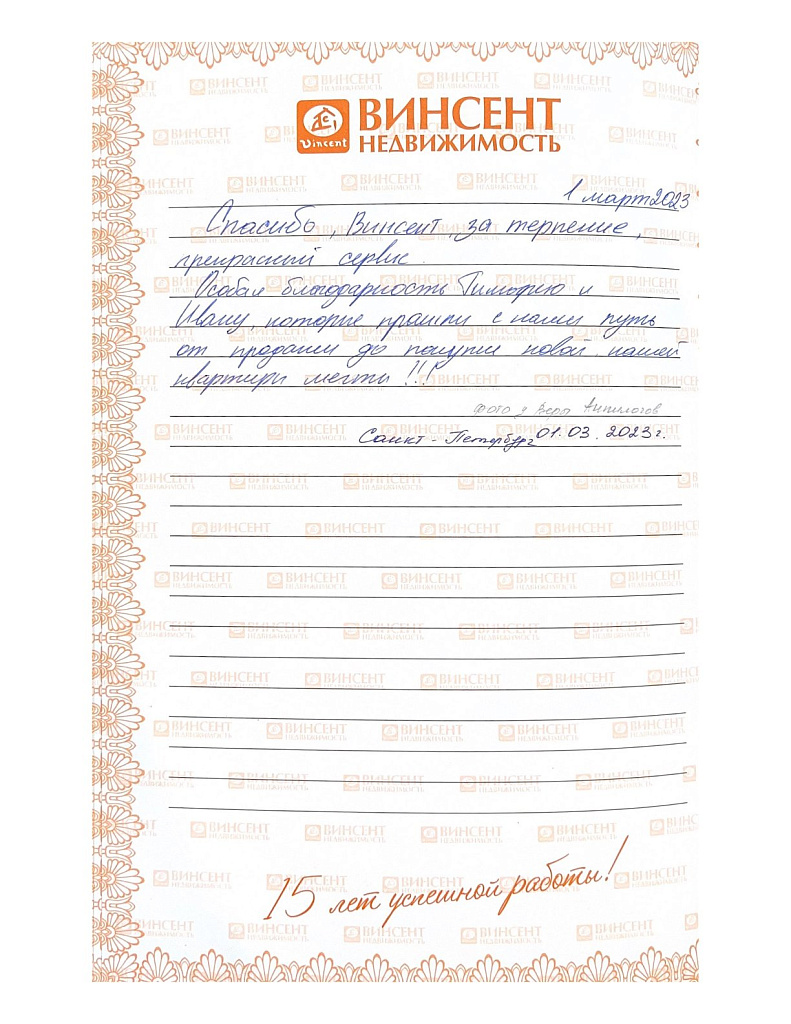 ВИНСЕНТ
НЕДВИЖИМОСТЬ
Vincent
1 март 2023
Спасибо, Винсент, за терпение,
прекрасный сервис.
Особая благодарность Тимофею и
Ивану, которые прошли с нами путь
от продажи до покупки новой нашей
квартиры мечты !!!
фото у Веры
Санкт - Петербург 01.03.2023г.
15 лет успешной работы!